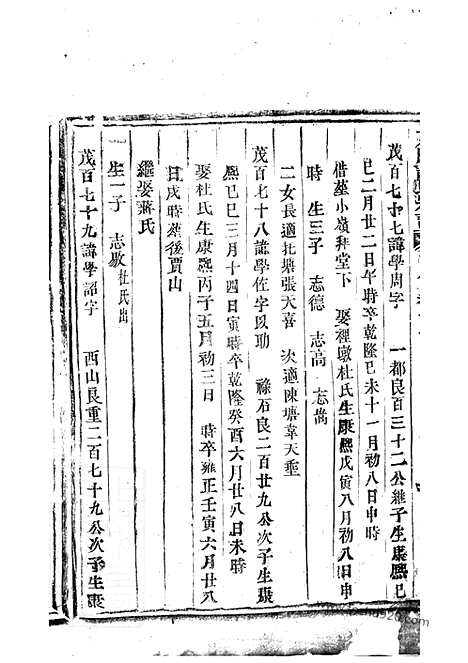 茂百七十七諱學周字　一都良百三十二公繼子生康熙己
巳二月廿二日午時卒乾隆己未十一月初八日申時
借墓小嶺拜堂下　娶裡墩杜氏生康熙戊寅八月初八日申
時　生三子　志德　志高　志尚
二女長適北塘張天喜　次適陳塘韋天垂
茂百七十八諱學佐字以功　祿石良二百廿九公次子生康
熙己巳三月十四日寅時卒乾隆癸酉六月廿八日未時
娶杜氏生康熙丙子五月初三日　時卒雍正壬寅六月廿八
日戌時葬後賈山
繼娶蔣氏
生一子　志敬杜氏出
茂百七十九諱學詔字　西山良重二百七十九公次子生康